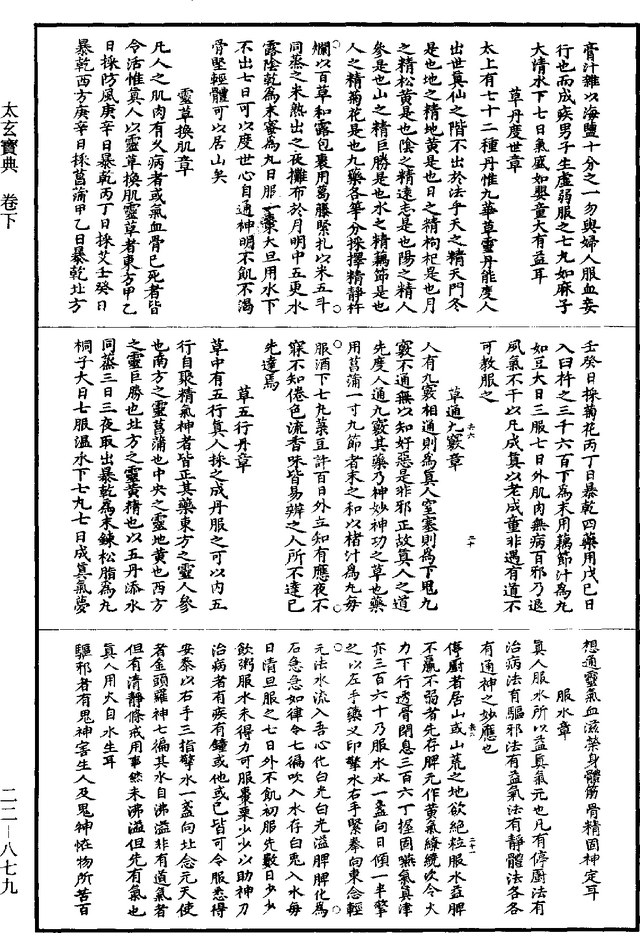 膏汁雜以海鹽十分之一勿與婦人服血妄
行也而成疾男子生虛弱服之七九如麻子
大清水下七日氣盛如嬰童大有益耳
草丹度世章
太上有七十二種丹惟九華草靈丹能度人
出世真仙之階不出於法乎天之精天門冬
是也地之精地黃是也日之精枸杞是也月
之精松黃是也陰之精遠志是也陽之精人
參是也山之精巨勝是也水之精藕節是也
人之精菊花是也九藥各等分採擇精靜杵
爛以百草和露包裹用葛藤緊扎以米五斗
同蒸之米熟出之夜攤布於月明中五更水
露陰乾為末蜜為九日服一棗大旦用水下
不出七日可以度世心自通神明不飢不渴
骨堅輕體可以居山矣
靈草換肌章
凡人之肌肉有久病者或氣血骨已死者皆
令活惟真人以靈草換肌靈草者東方甲乙
日採防風庚辛日暴乾丙丁日採艾壬癸日
暴乾西方庚辛日採菖蒲甲乙日暴乾北方
壬癸日採菊花丙丁日暴乾四藥用戊己日
入臼杵之三千六百下為末用藕節汁為九
如豆大日三服七日外肌肉無病百邪乃退
夙氣不干以凡成真以老成童非遇有道不
可教服之
草通九竅章
人有九竅相通則為真人窒塞則為下鬼九
竅不通無以知好惡是非邪正故真人之道
先度人通九竅其藥乃神妙神功之草也藥
用菖蒲一寸九節者末之和以楮汁為九每
服酒下七九菉豆許百日外立知有應夜不
寐不知倦色流香味皆易辨之人所不達已
先達焉
草五行丹章
草中有五行真人採之成丹服之可以內五
行自聚精氣神者皆正其藥東方之靈人參
也南方之靈菖蒲也中央之靈地黃也西方
之靈巨勝也北方之靈黃精也以五丹添水
同蒸三日三夜取出暴乾為末鍊松脂為九
桐子大日七服溫水下七九七日成真氣夢
想通靈氣血滋榮身體筋骨精固神定耳
服水章
真人服水所以益真氣元也凡有停廚法有
治病法有驅邪法有益氣法有靜體法各各
有通神之妙應也
停廚者居山或山荒之地欲絕粒服水益脾
不羸不弱者先存脾元作黃氣繚繞次令火
力下行透骨閉息三百六丁握固嚥氣真津
亦三百六十乃服水水一盞向日傾一半擎
之以左手藥叉印擎水右手緊拳向東念輕
元法水流入吾心化白光白光溢脾脾化為
石急急如律令七徧吹入水存白兎入水每
日清旦服之七日外不飢初服先數日少少
飲粥服水未得力可服棗栗少少以助神刀
治病者有疾有鐘或他或已皆可令服悉得
安泰以右手三指擎水一盞向北念元天使
者金頭羅神七徧其水自沸溢非有道氣者
但有清靜條戒用事然未沸溢但先有氣也
真人用火自水生耳
驅邪者有鬼神害生人及鬼神怪物所苦百
太玄寶典　卷下
二二—八七九